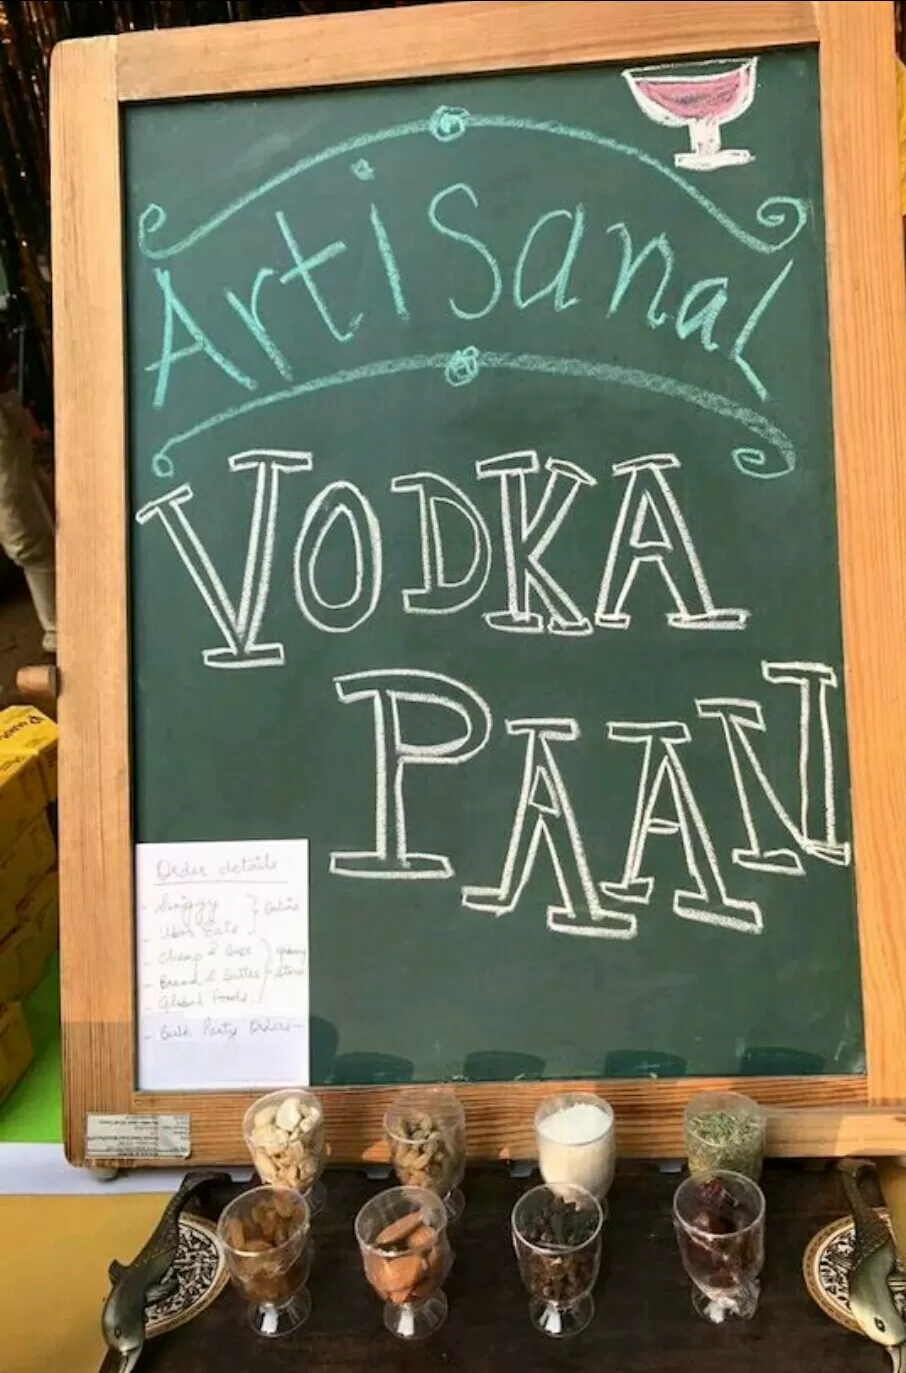 Artisanal
VODKA
PAAN
Order details
- Swiggy
- Uber Eats
Online
- Cheap & Best
- Bread & Butter
- Global Foods
Store
- Bulk Party Orders -